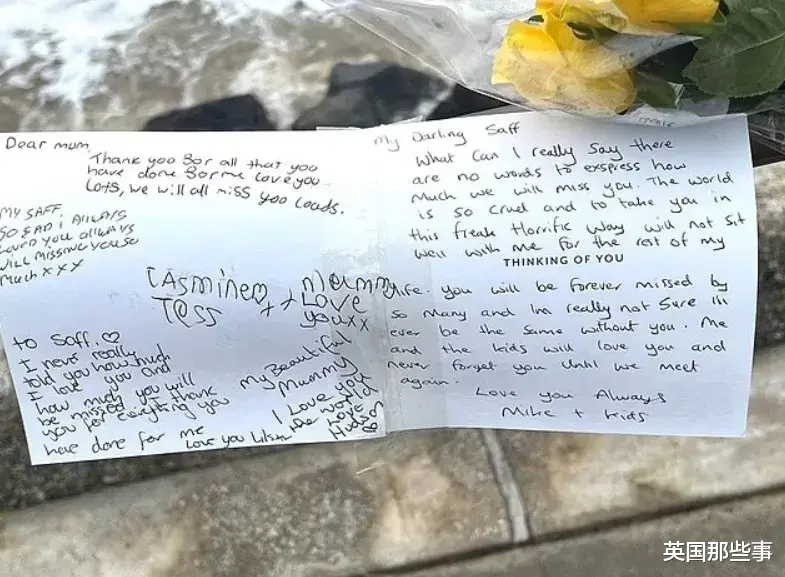 Dear mum,
Thank you for all that you
have done for me love you
Lots, we will all miss you loads.
MY SAFF.
SO SAD I ALWAYS
LOVED YOU ALWAYS
WILL MISSING YOU SO
MUCH xxx
Tess
x x
Love
you xx
to Saff. ♡
I never really
told you how much
I love you and
how much you will
be missed. thank
you for everything you
have done for me
Love you
My Beautiful
Mummy
I Love you
the world
Love
Hudson
My Darling Saff
What can I really say there
are no words to exspress how
much we will miss you. The world
is so cruel and to take you in
this freak Horrific way will not sit
well with me for the rest of my
THINKING OF YOU
life. you will be forever missed by
so many and Im really not sure ill
ever be the same without you. Me
and the kids will love you and
never forget you until we meet
again.
Love you Always
Mike + kids
英国那些事